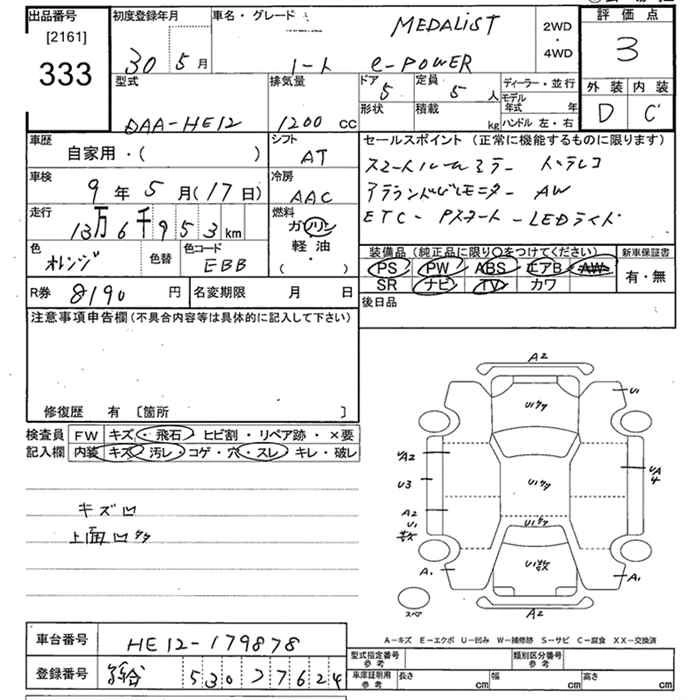 出品番号 初度登録年月 車名・グレード MEDALIST 2WD 評価点
[2161] 30 5月 ノート e-POWER ・ 3
333 4WD
型式 排気量 ドア 定員 ディーラー・並行 外装 内装
DAA-HE12 1200 CC 5 5 人 モデル年式 年 D C
形状 積載 kg ハンドル 左・右
車歴 シフト セールスポイント (正常に機能するものに限ります)
自家用・( ) AT スマートルームミラー ドラレコ
車検 冷房 アラウンドビューモニター AW
9年 5月(17日) AAC ETC- Pスタート-LEDライト
走行 燃料
13万6千953km ガソリン
色 色替 色コード 軽油 装備品 (純正品に限り○をつけてください) 新車保証書
オレンジ EBB ( ) PS PW ABS エアB AW 有・無
SR ナビ TV カワ
R券 8190円 名変期限 月 日 後日品
注意事項申告欄 (不具合内容等は具体的に記入して下さい)
修復歴 有 〔箇所 〕
検査員 FW キズ・飛石・ヒビ割・リペア跡・×要
記入欄 内装 キズ・汚レ・コゲ・穴・スレ・キレ・破レ
キズ凹
上面凹
A2
U1
U1
A2
U3
A2
U1
A4
A1
A1
A2
スペア
A-キズ E-エクボ U-凹み W-補修跡 S-サビ C-腐食 XX-交換済
車台番号 HE12-179878
型式指定番号 参考 類別区分番号 参考
登録番号 530 27624
車庫証明用 参考 長さ cm 幅 cm 高さ cm